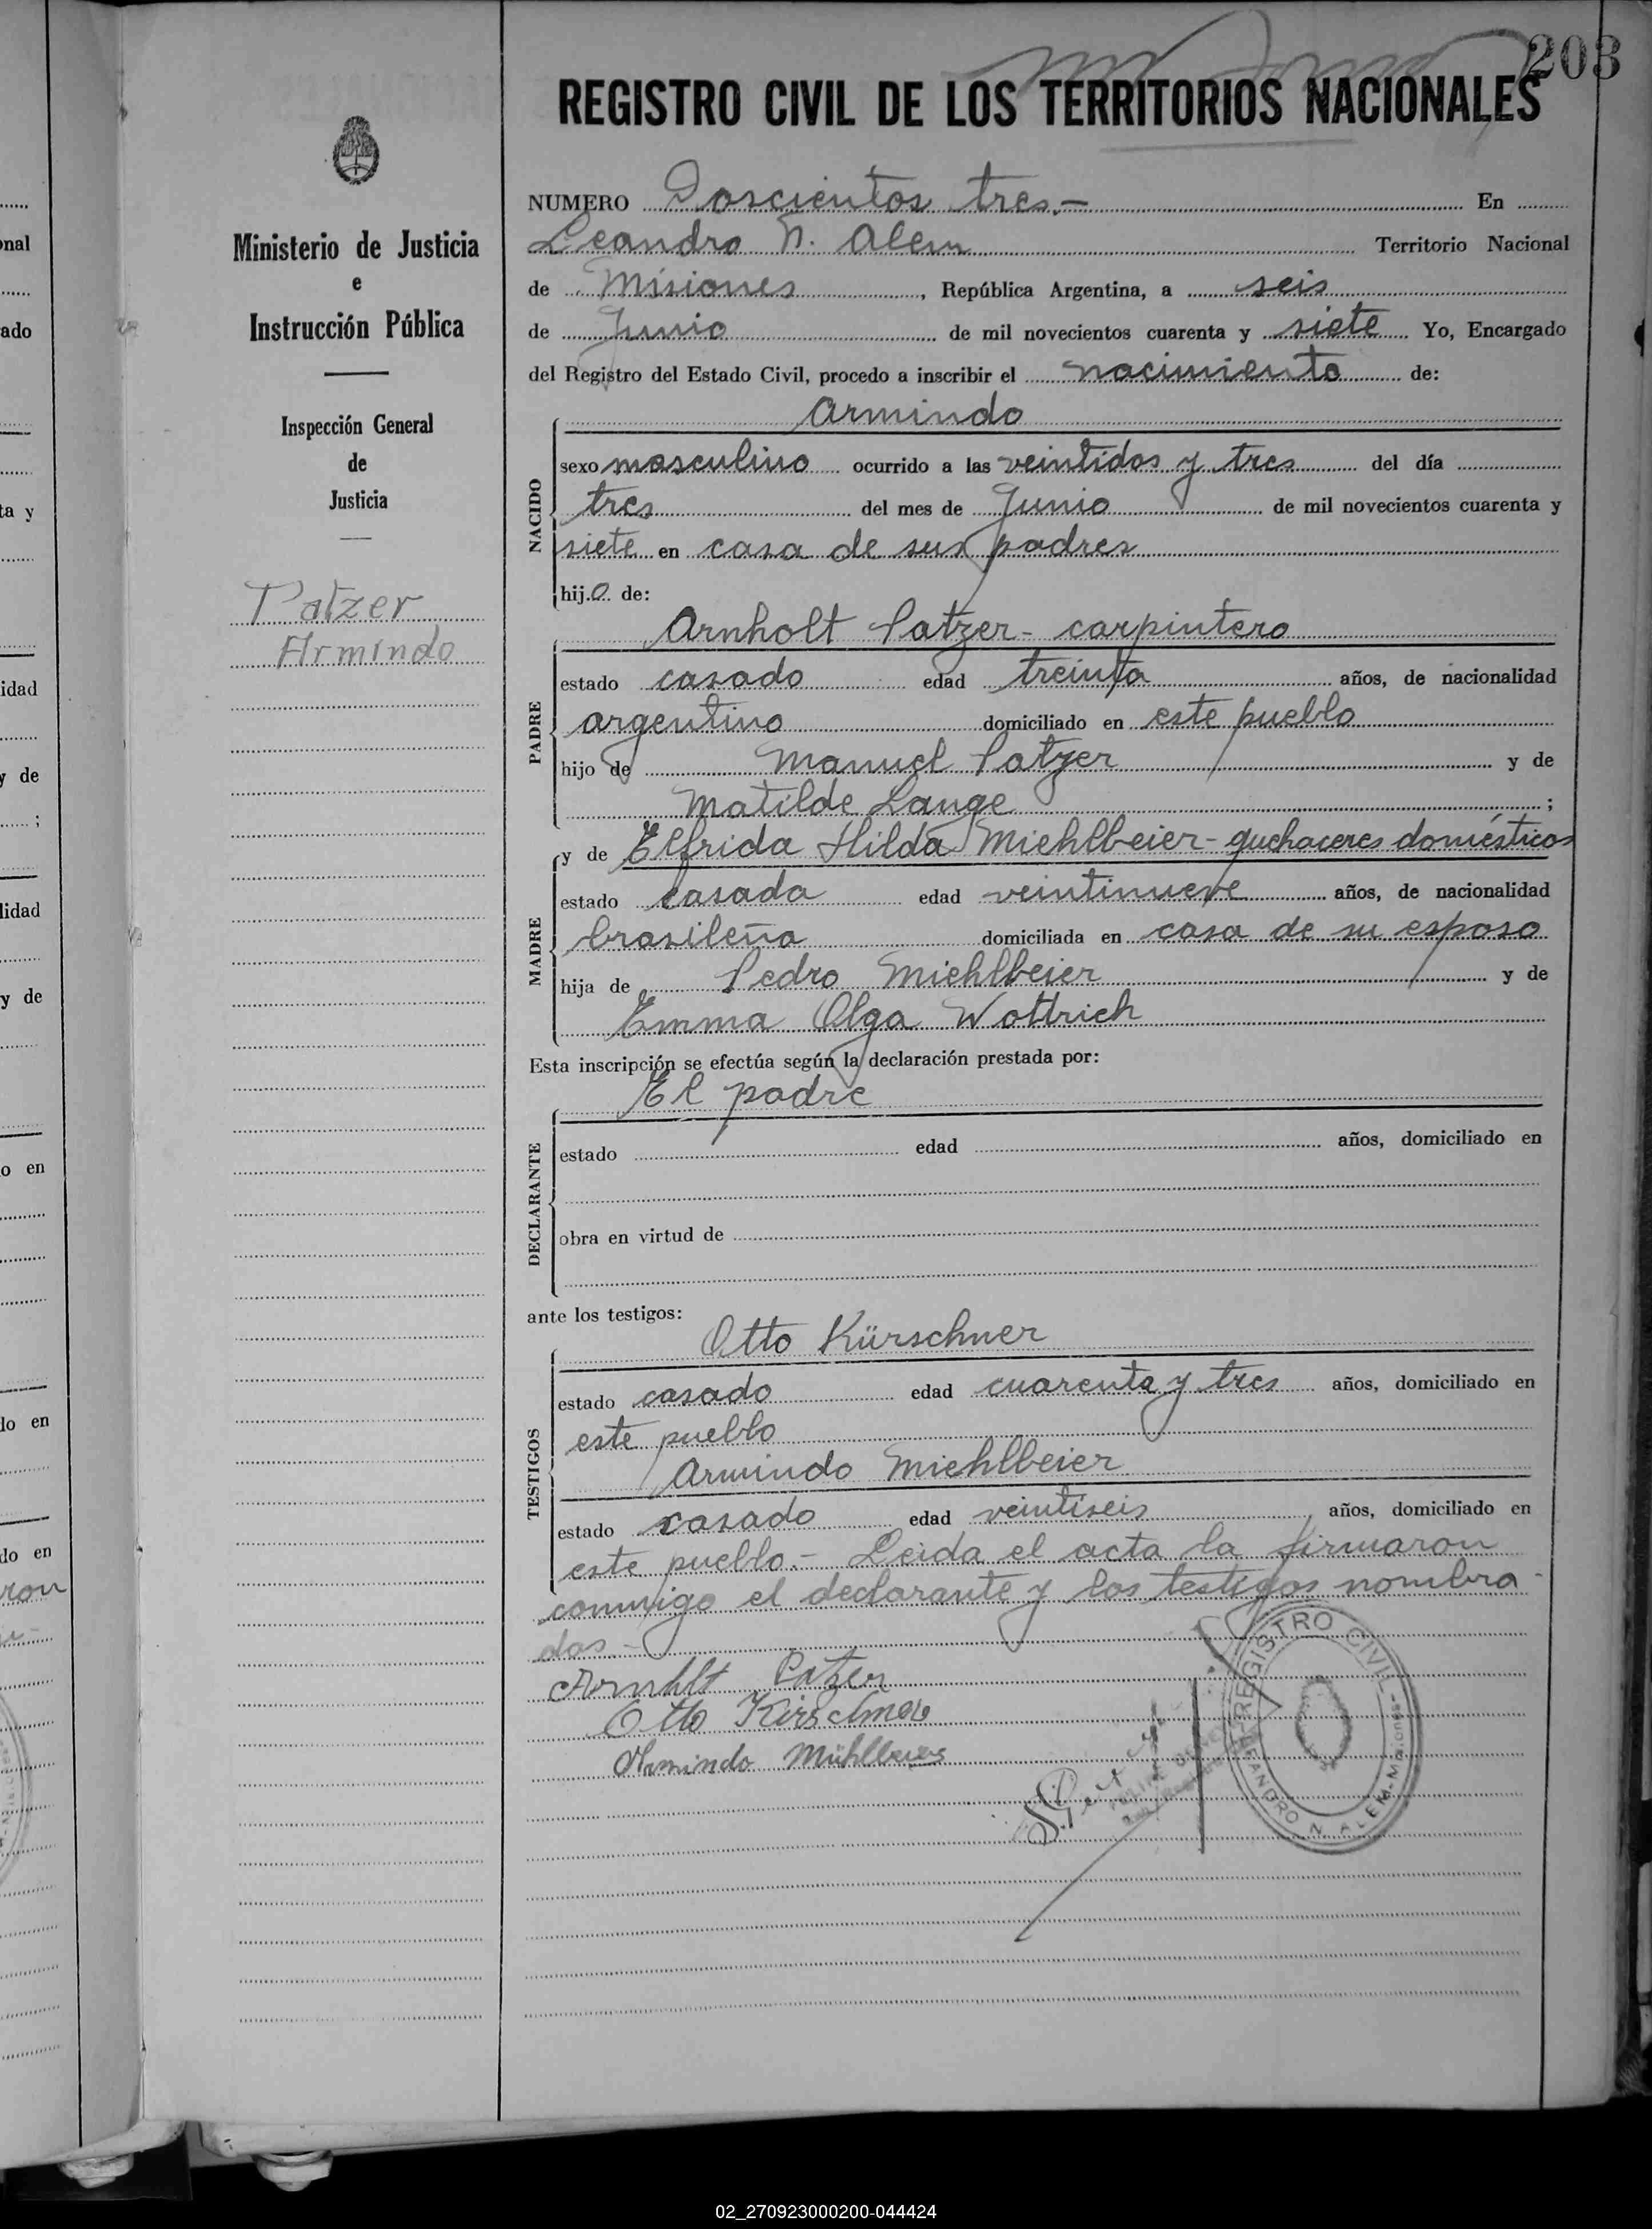 203
REGISTRO CIVIL DE LOS TERRITORIOS NACIONALES
Ministerio de Justicia
e
Instrucción Pública
Inspección General
de
Justicia
Patzer
Armindo
NUMERO Doscientos tres.- En
Leandro N. Alem Territorio Nacional
de Misiones, República Argentina, a seis
de Junio de mil novecientos cuarenta y siete Yo, Encargado
del Registro del Estado Civil, procedo a inscribir el nacimiento de:
Armindo
NACIDO
sexo masculino ocurrido a las veintidos y tres del día
tres del mes de Junio de mil novecientos cuarenta y
siete en casa de sus padres
hijo de:
Arnholt Patzer - carpintero
PADRE
estado casado edad treinta años, de nacionalidad
argentino domiciliado en este pueblo
hijo de Manuel Patzer y de
Matilde Lange ;
y de Elfrida Hilda Miehlbeier - quehaceres domésticos
MADRE
estado casada edad veintinueve años, de nacionalidad
brasileña domiciliada en casa de su esposo
hija de Pedro Miehlbeier y de
Emma Olga Wottrich
Esta inscripción se efectúa según la declaración prestada por:
El padre
DECLARANTE
estado edad años, domiciliado en
obra en virtud de
ante los testigos:
Otto Kürschner
TESTIGOS
estado casado edad cuarenta y tres años, domiciliado en
este pueblo
Armindo Miehlbeier
estado casado edad veintiseis años, domiciliado en
este pueblo.- Leida el acta la firmaron
conmigo el declarante y los testigos nombra-
dos.-
Arnhlt Patzer
Otto Kirschner
Armindo Mühlbeier
REGISTRO CIVIL
LEANDRO N. ALEM-Misiones-
nal
ado
ta y
idad
y de
;
lidad
y de
o en
lo en
do en
ron
02_270923000200-044424